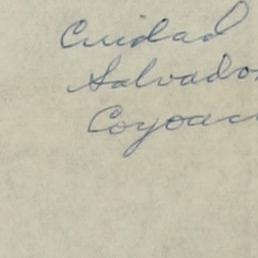 Cuidad
Salvado
Coyoac